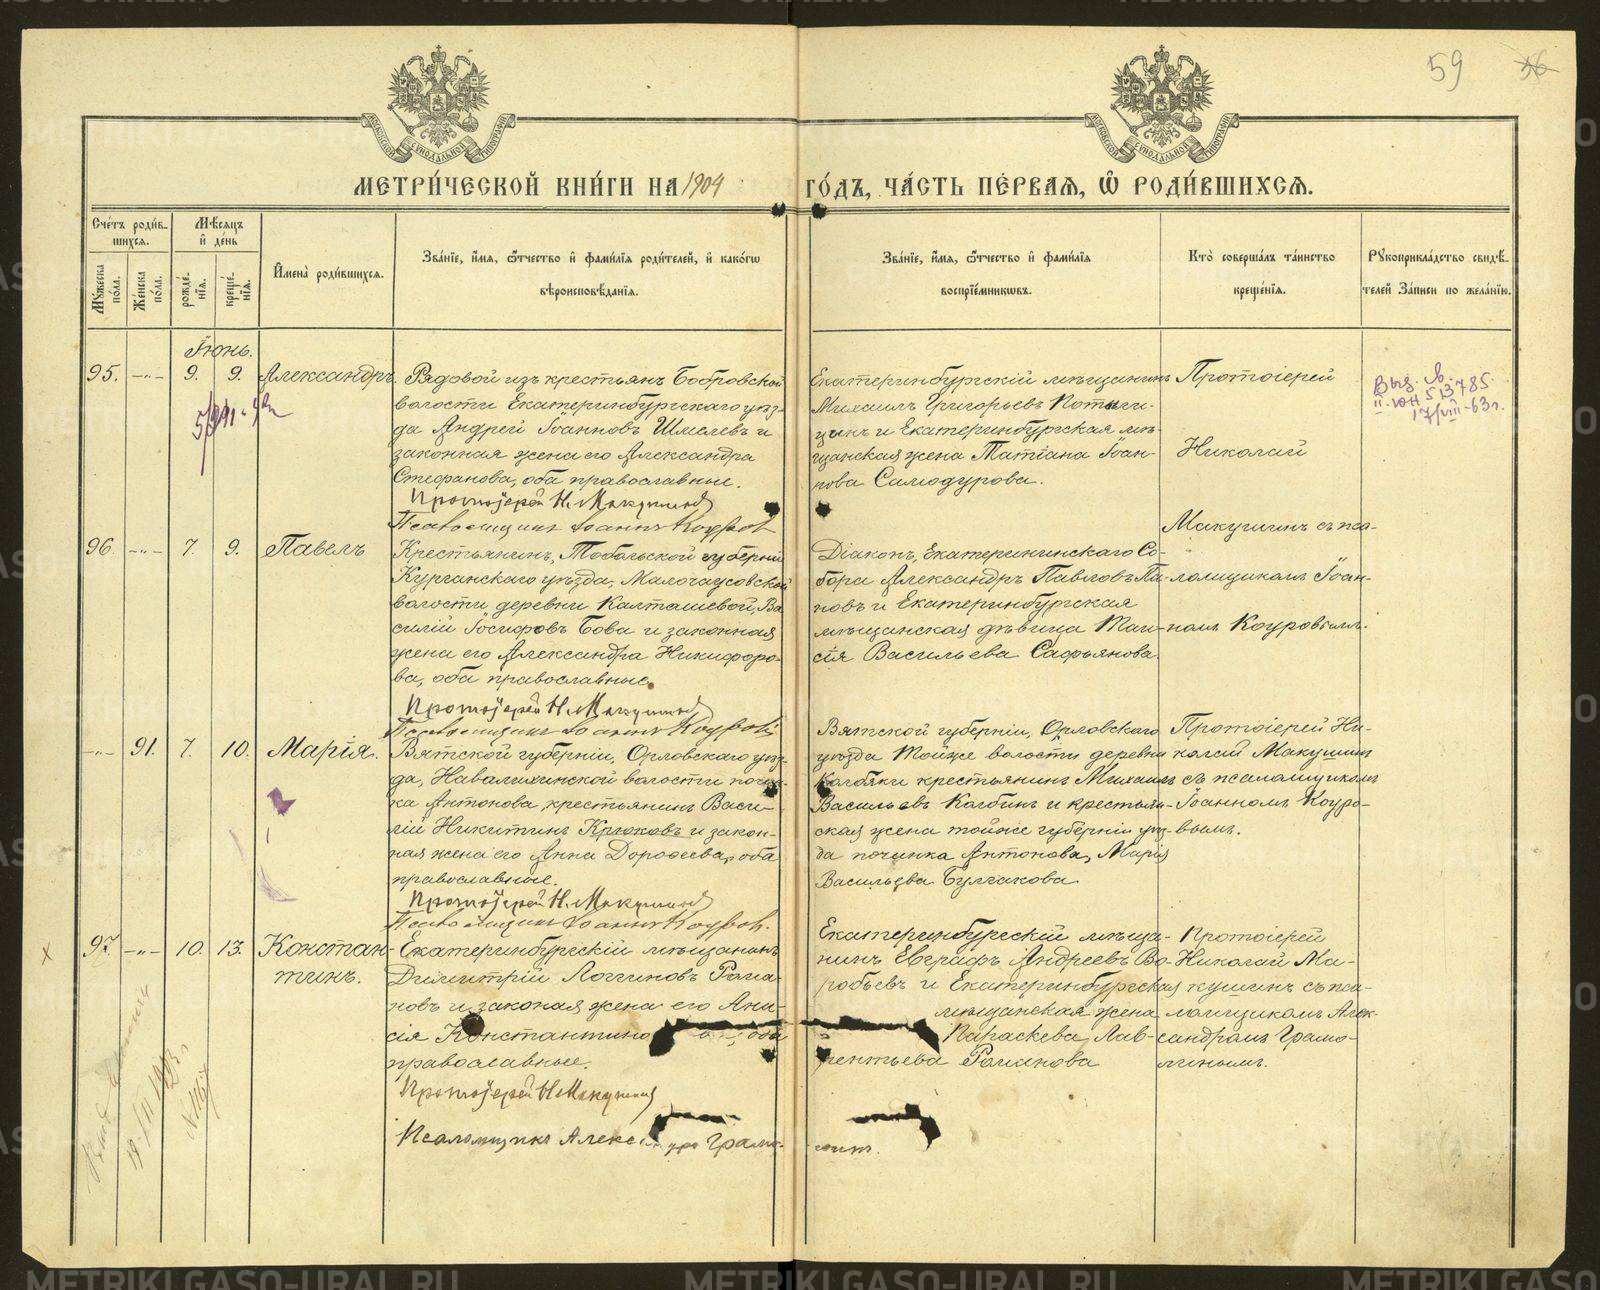 59 56
МОСКОВСКОЙ СѴНОДАЛЬНОЙ ТИПОГРАФІИ
МОСКОВСКОЙ СѴНОДАЛЬНОЙ ТИПОГРАФІИ
МЕТРИ́ЧЕСКОЙ КНИ́ГИ НА 1904 ГО́ДЪ, ЧА́СТЬ ПЕ́РВАЯ, Ѡ РОДИ́ВШИХСЯ.
Сче́тъ роди́в-
шихся.
Мѣ́сяцъ
и҆ де́нь
Му́жеска по́ла.
Же́нска по́ла.
рожде́-
нїя.
креще́-
нїя.
И҆мена̀ роди́вшихся.
Зва́нїе, и҆́мя, ѻ҆́тчество и҆ фами́лїя роди́телей, и҆ како́гѡ
вѣроисповѣ́данїя.
Зва́нїе, и҆́мя, ѻ҆́тчество и҆ фами́лїя
воспрїе́мникѡвъ.
Кто̀ соверша́лъ та́инство
креще́нїя.
Рꙋкоприкла́дство свидѣ́-
телей За́писи по жела́нїю.
Іюнь.
95. —"— 9. 9. Александръ.
Рядовой изъ крестьянъ Бобровской
волости Екатеринбургскаго уѣз-
да Андрей Іоанновъ Шмелевъ и
законная жена его Александра
Стефанова, оба православные.
Протоіерей Н. Макушинъ
Псаломщикъ Іоаннъ Коуровъ
Екатеринбургскій мѣщанинъ
Михаилъ Григорьевъ Потыги-
цынъ и Екатеринбургская мѣ-
щанская жена Татіана Іоан-
нова Самодурова.
Протоіерей
Николай
Макушинъ съ пса-
ломщикомъ Іоан-
номъ Коуровымъ.
Выд. св.
II-ЮН 513785
17/VIII-63г.
96. —"— 7. 9. Павелъ
Крестьянинъ, Тобольской губерніи
Курганскаго уѣзда, Малочаусовской
волости деревни Калташевой, Ва
силій Іосифовъ Бова и законная
жена его Александра Никифоро-
ва, оба православные.
Протоіерей Н. Макушинъ
Псаломщикъ Іоаннъ Коуровъ
Діаконъ, Екатерининскаго Со-
бора Александръ Павловъ Па-
новъ и Екатеринбургская
мѣщанская дѣвица Таи-
сія Васильева Сафьянова.
—"— 91. 7. 10. Марія.
Вятской губерніи, Орловскаго уѣз-
да, Навалихинской волости почин-
ка Антонова крестьянинъ Васи-
лій Никитинъ Крюковъ и закон-
ная жена его Анна Дороѳеева, оба
православные.
Протоіерей Н. Макушинъ
Псаломщикъ Іоаннъ Коуровъ.
Вятской губерніи, Орловскаго
уѣзда Тойже волости деревни
Колбяки крестьянинъ Михаилъ
Васильевъ Колбинъ и крестьян-
ская жена тойже губерніи уѣз-
да починка Антонова, Марія
Васильева Булчакова.
Протоіерей Ни-
колай Макушинъ
съ псаломщикомъ
Іоанномъ Коуро-
вымъ.
97. —"— 10. 13. Констан-
тинъ.
Екатеринбургскій мѣщанинъ
Димитрій Логгиновъ Рома-
новъ и законая жена его Ани-
сія Константино оба
православные.
Протоіерей Н Макушинъ
Псаломщикъ Алекс Грамо-
Екатеринбургскій мѣща-
нинъ Евграфъ Андреевъ Во-
робьевъ и Екатеринбургская
мѣщанская жена
Параскева Лав-
рентьева Романова
Протоіерей
Николай Ма-
кушинъ съ пса-
ломщикомъ Алек-
сандромъ Грамо-
линымъ.